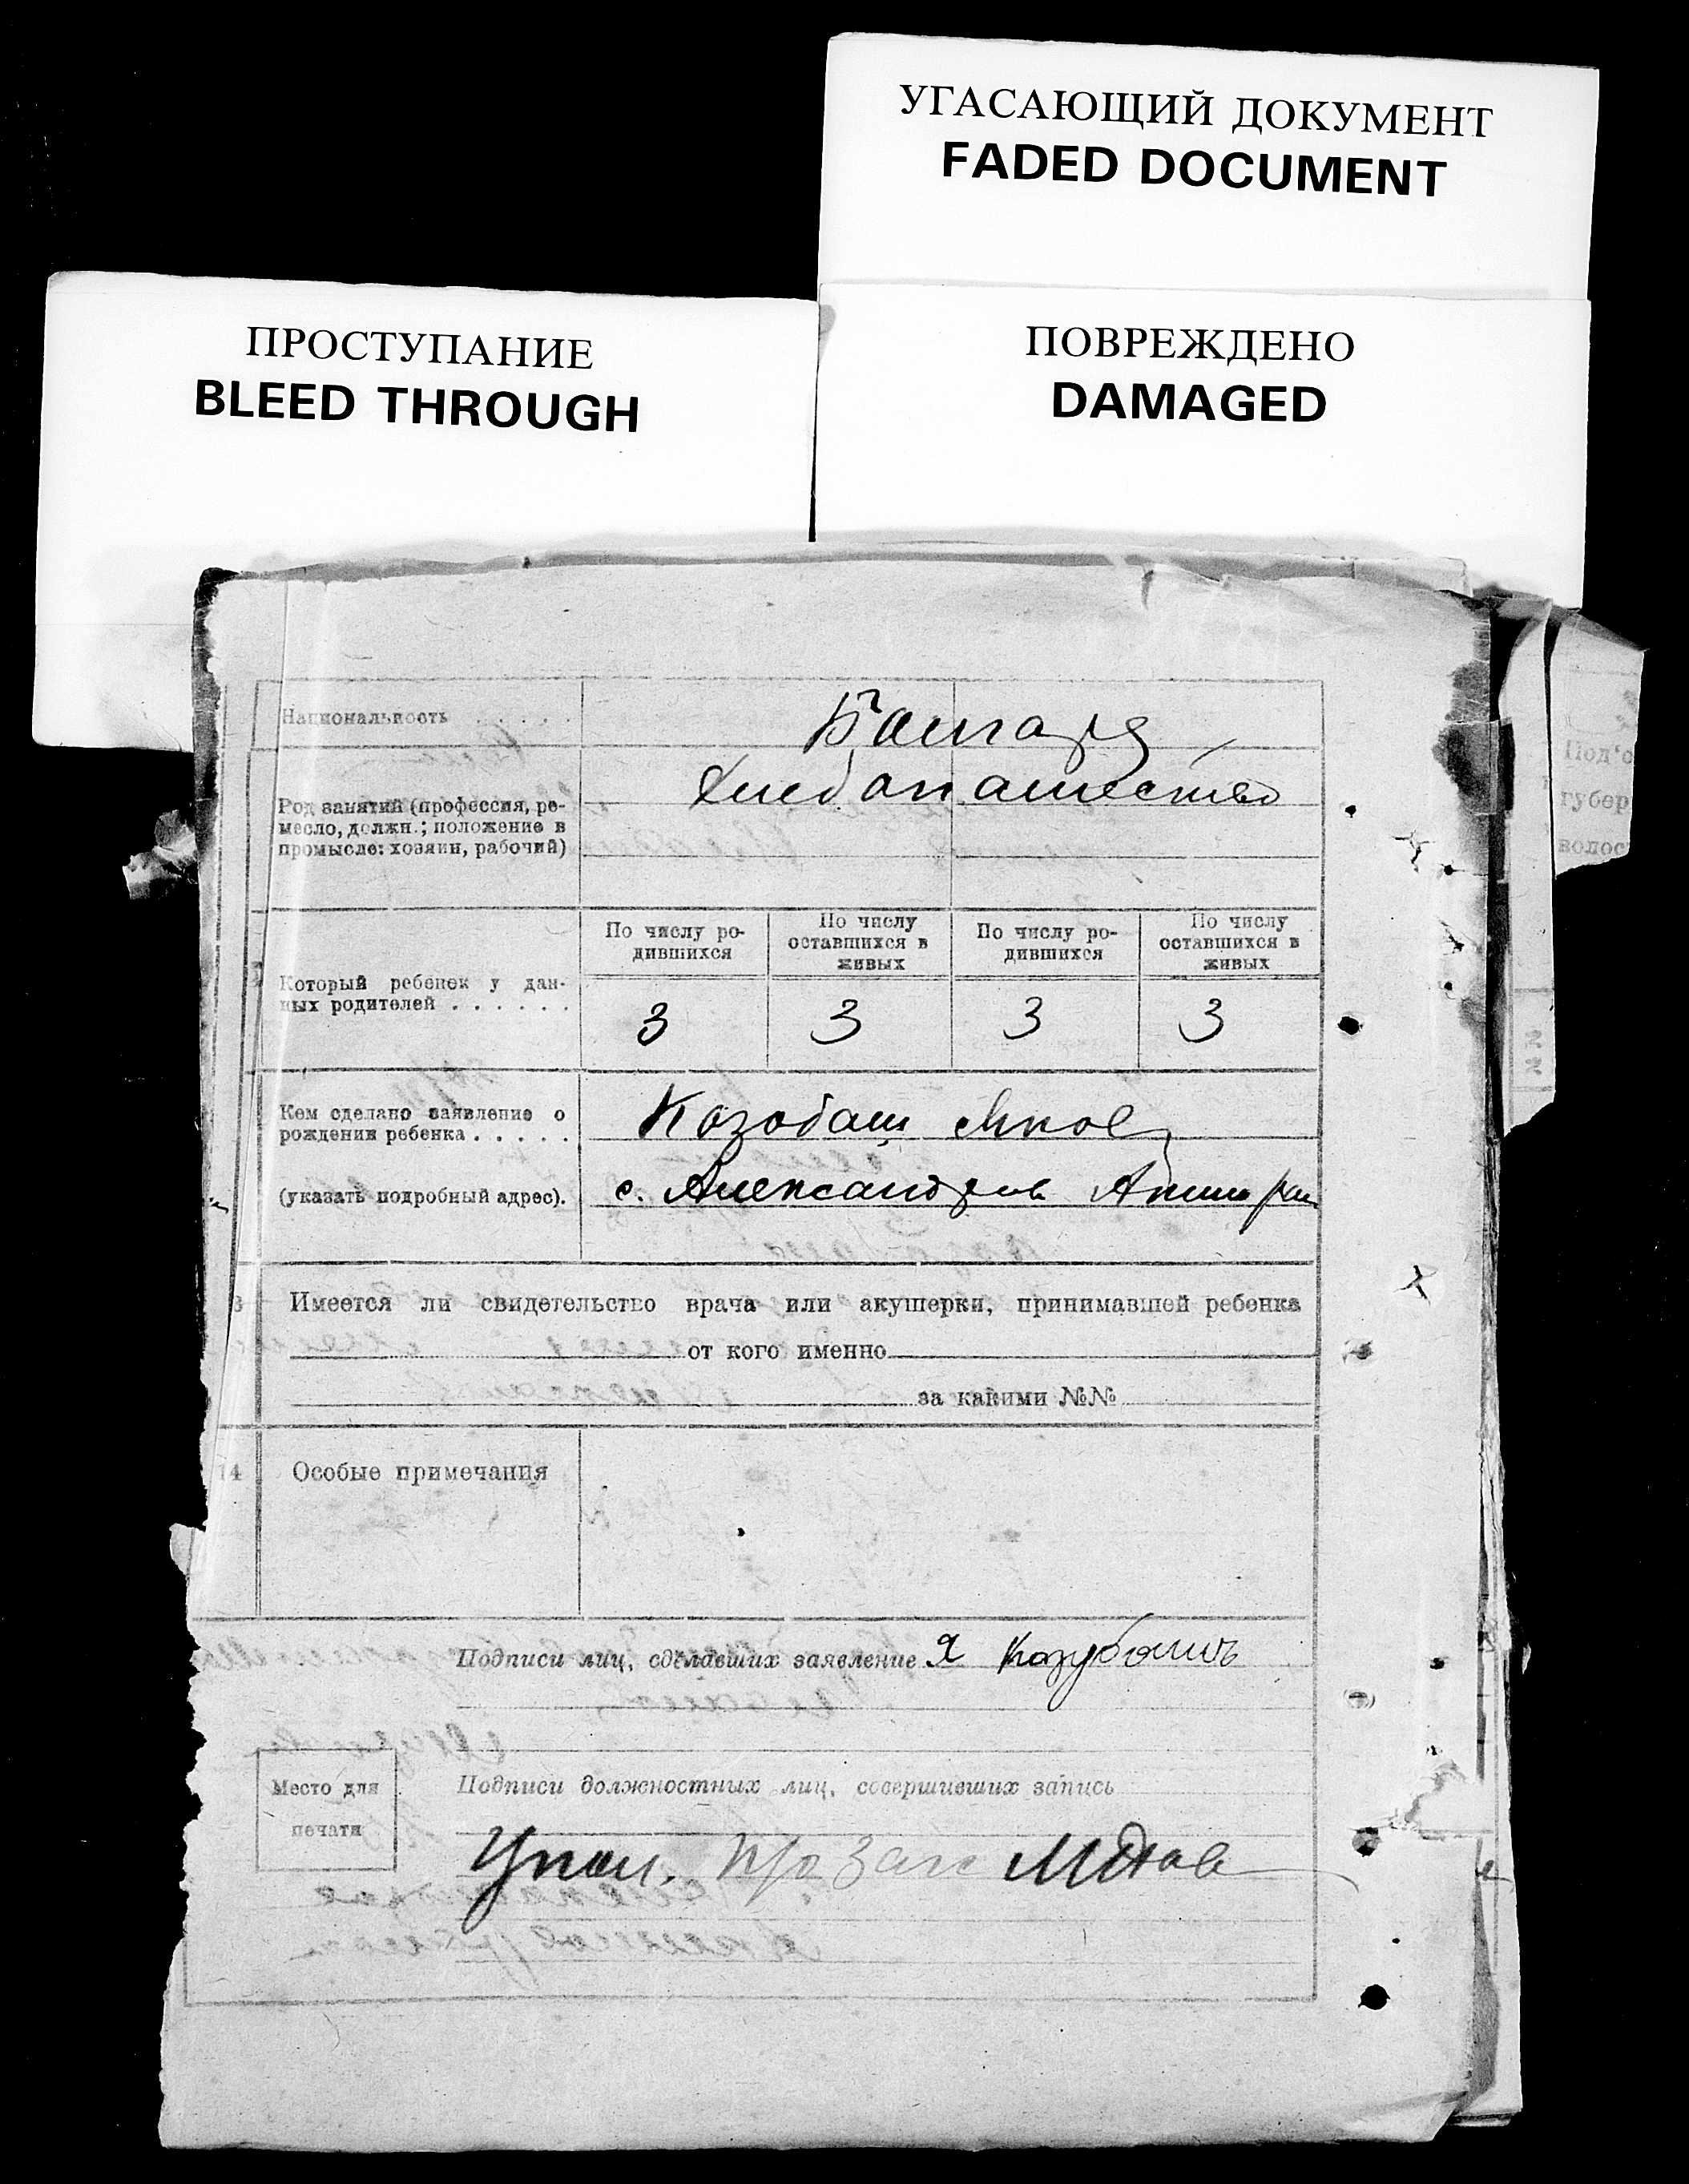 УГАСАЮЩИЙ ДОКУМЕНТ
FADED DOCUMENT
ПРОСТУПАНИЕ
BLEED THROUGH
ПОВРЕЖДЕНО
DAMAGED
Национальность . . . . .
Болгаре
Род занятий (профессия, ре-
месло, должн.; положение в
промысле: хозяин, рабочий)
Хлебопашество
По числу ро-
дившихся
По числу
оставшихся в
живых
По числу ро-
дившихся
По числу
оставшихся в
живых
Который ребенок у дан-
ных родителей . . . . . .
3 3 3 3
Кем сделано заявление о
рождении ребенка . . . . .
Козобаш Яков
(указать подробный адрес).
с. Александров
3 Имеется ли свидетельство врача или акушерки, принимавшей ребенка
от кого именно
за какими №№
14 Особые примечания
Подписи лиц, сделавших заявление Я Козубашъ
Место для
печати
Подписи должностных лиц, совершивших запись
Упол.
Под'о
губер
волос